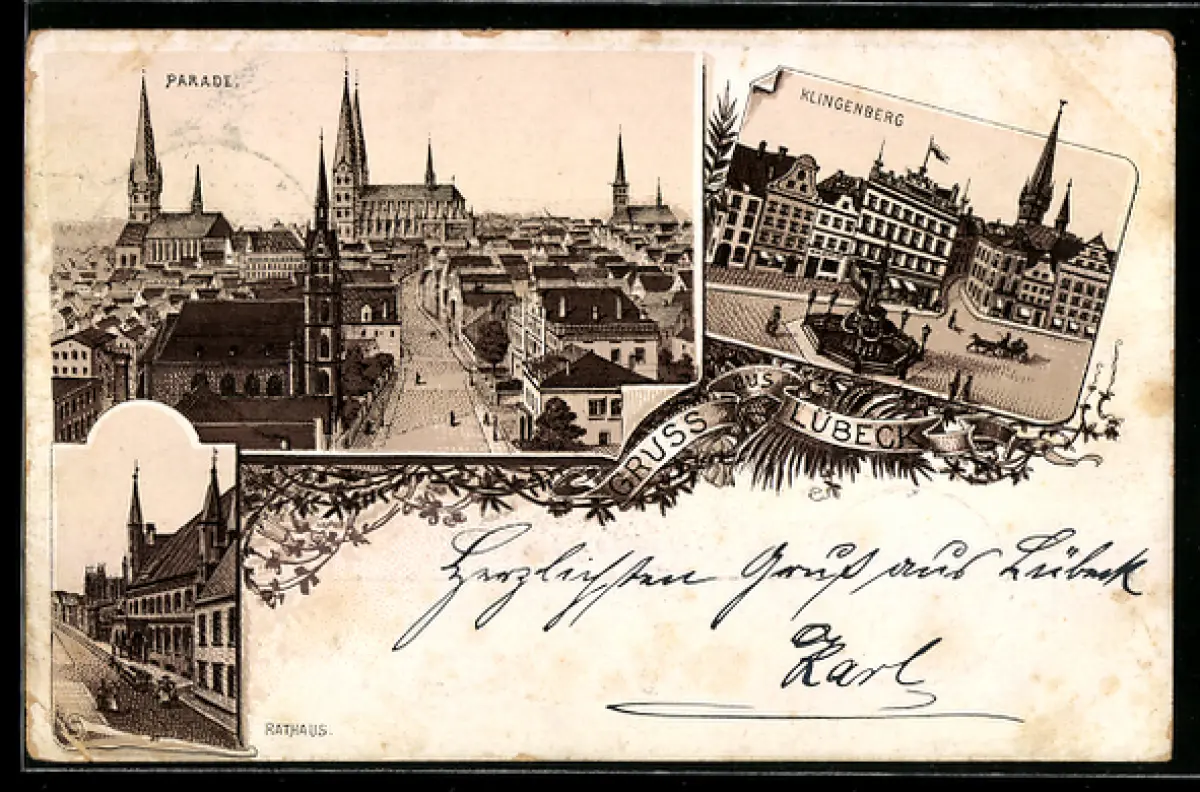 PARADE.
KLINGENBERG
GRUSS AUS LÜBECK
Herzlichsten Gruß aus Lübeck
Karl
RATHAUS.